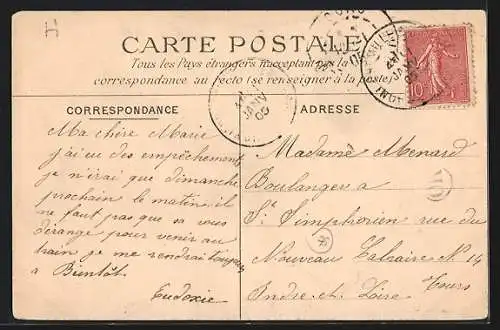 H
CARTE POSTALE
Tous les Pays étrangers n'acceptent pas la
correspondance au recto (se renseigner à la poste)
CORRESPONDANCE
Ma chère Marie
J'ai eu des empêchement
je n'irai que dimanche
prochain le matin il
ne faut pas que sa vous
dérange pour venir au
train je me rendrai toujours
a Bientôt
Eudoxie
ADRESSE
Madame Menard
Boulangera
St Simphorien rue du
Nouveau Calvaire N 14
Tours
Indre et Loire
10
JANV
05